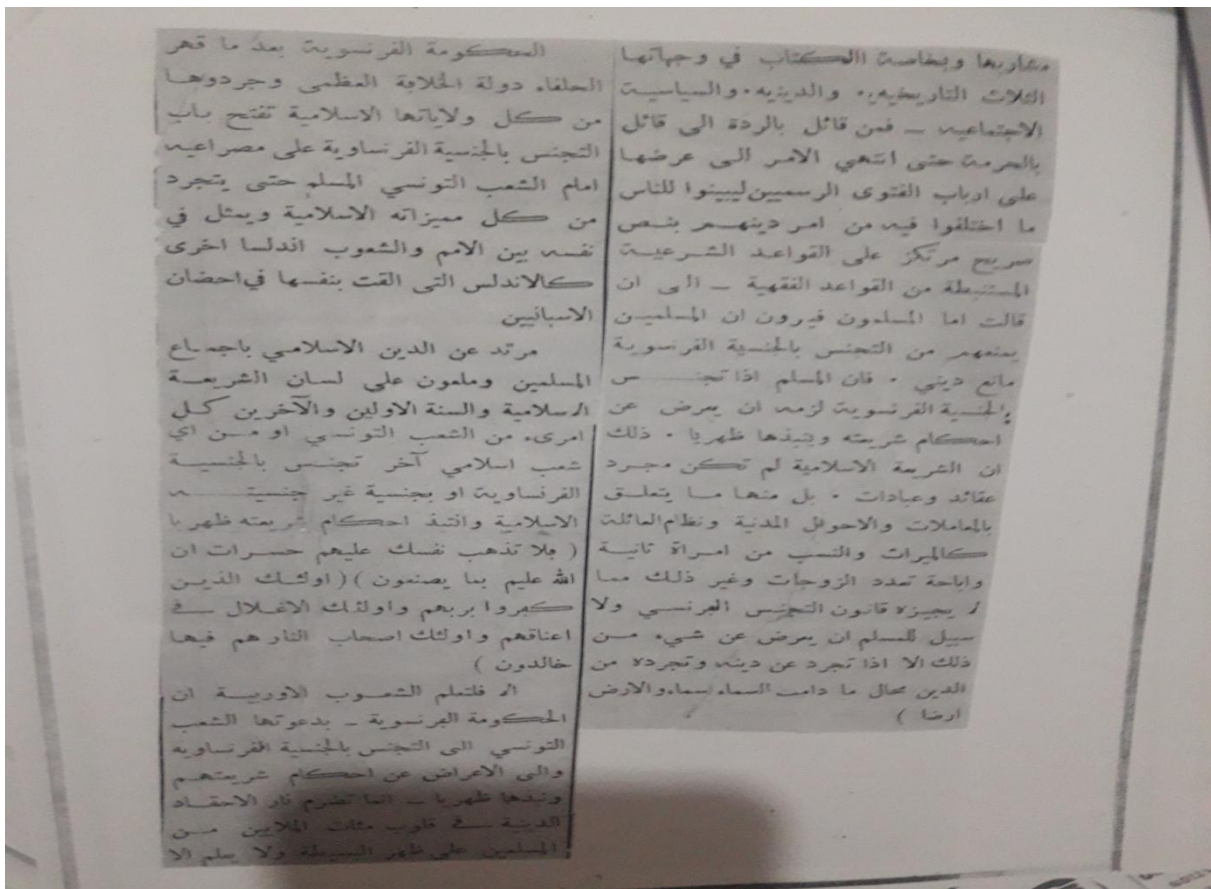 مشاربها وبخاصة االكتاب في وجهاتها
الثلاث التاريخيه، والدينيه، والسياسية
الاجتماعيه – فمن قائل بالردة الى قائل
بالحرمة حتى انتهي الامر الى عرضها
على ارباب الفتوى الرسميين ليبينوا للناس
ما اختلفوا فيه من امر دينهم بنص
صريح مرتكز على القواعد الشرعية
المستنبطة من القواعد الفقهية – الى ان
قالت اما المسلمون فيرون ان المسلمين
يمنعهم من التجنس بالجنسية الفرنسوية
مانع ديني . فان المسلم اذا تجنس
بالجنسية الفرنسوية لزمه ان يعرض عن
احكام شريعته وينبذها ظهريا . ذلك
ان الشريعة الاسلامية لم تكن مجرد
عقائد وعبادات . بل منها ما يتعلق
بالمعاملات والاحوال المدنية ونظام العائلة
كالميراث والنسب من امراة ثانية
واباحة تعدد الزوجات وغير ذلك مما
لا يجيزه قانون التجنس الفرنسي ولا
سبيل للمسلم ان يعرض عن شيء من
ذلك الا اذا تجرد عن دينه وتجرده من
الدين محال ما دامت السماء سماء والارض
ارضا )
الحكومة الفرنسوية بعد ما قهر
الحلفاء دولة الخلافة العظمى وجردوها
من كل ولاياتها الاسلامية تفتح باب
التجنس بالجنسية الفرنساوية على مصراعيه
امام الشعب التونسي المسلم حتى يتجرد
من كل مميزاته الاسلامية ويمثل في
نفسه بين الامم والشعوب اندلسا اخرى
كالاندلس التى القت بنفسها في احضان
الاسبانيين
مرتد عن الدين الاسلامي باجماع
المسلمين وملعون على لسان الشريعة
الاسلامية والسنة الاولين والآخرين كل
امرىء من الشعب التونسي او من اي
شعب اسلامي آخر تجنس بالجنسية
الفرنساوية او بجنسية غير جنسيته
الاسلامية وانتبذ احكام شريعته ظهريا
( فلا تذهب نفسك عليهم حسرات ان
الله عليم بما يصنعون ) ( اولئك الذين
كفروا بربهم واولئك الاغلال في
اعناقهم واولئك اصحاب النار هم فيها
خالدون )
الا فلتعلم الشعوب الاوربية ان
الحكومة الفرنسوية – بدعوتها الشعب
التونسي الى التجنس بالجنسية الفرنساوية
والى الاعراض عن احكام شريعتهم
ونبذها ظهريا – انما تضرم نار الاحقاد
الدينية في قلوب مئات الملايين من
المسلمين على ظهر البسيطة ولا يعلم الا